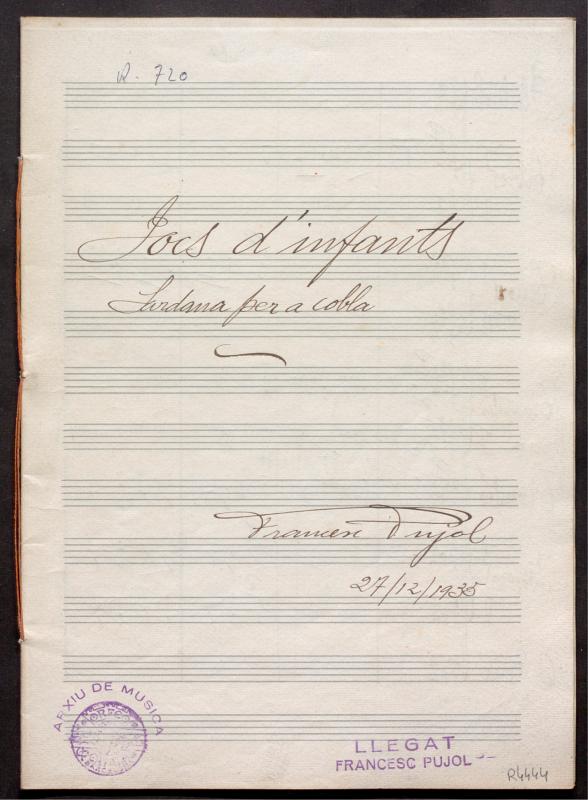 R. 720
Jocs d'infants
Sardana per a cobla
Francesc Pujol
27/12/1935
ARXIU DE MUSICA
LLEGAT
FRANCESC PUJOL
R4444